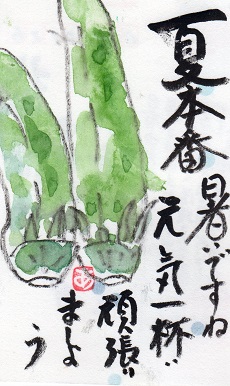 夏本番
暑いですね
元気一杯
頑張り
ましょ
う